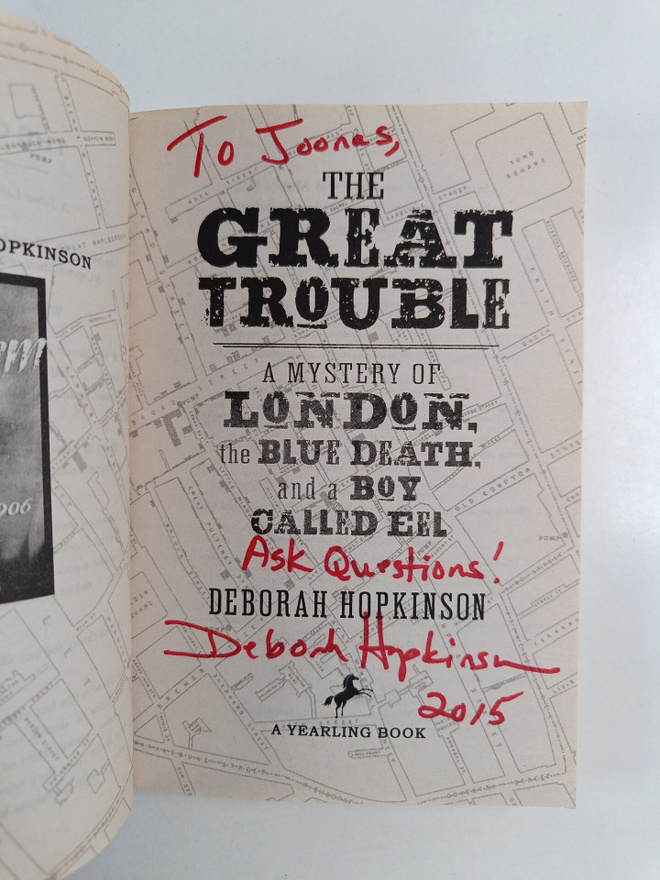 OPKINSON
em
906
To Joonas,
THE
GREAT
TROUBLE
A MYSTERY OF
LONDON,
the BLUE DEATH,
and a BOY
CALLED EEL
Ask Questions!
DEBORAH HOPKINSON
Deborah Hopkinson
2015
A YEARLING BOOK
SOHO
SQUARE
OLD COMPTON
PUMP